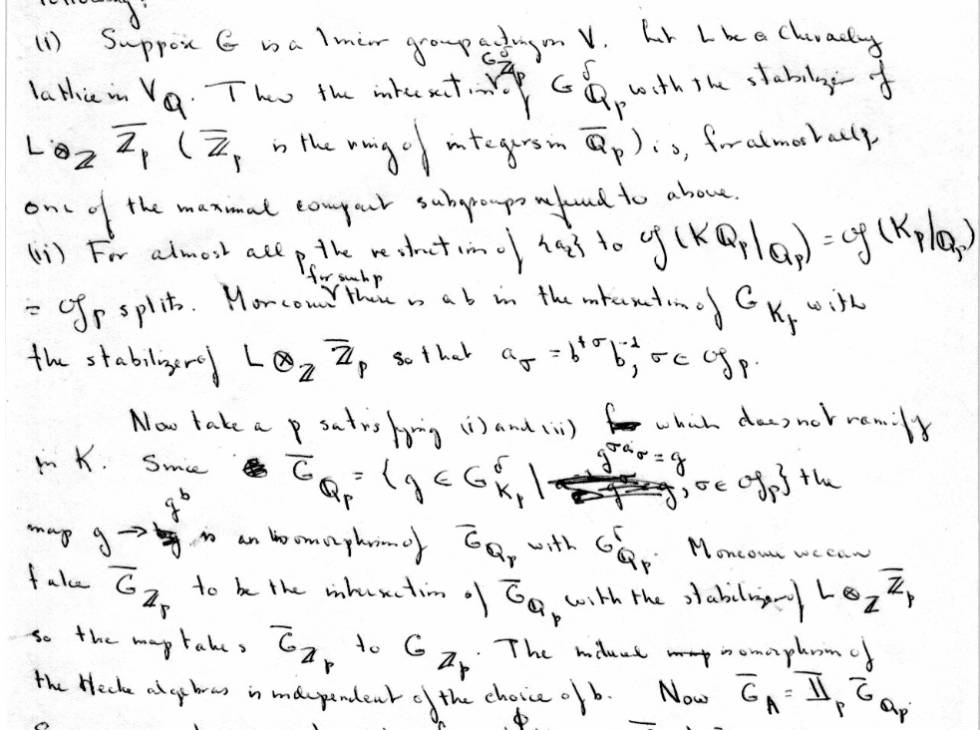 following:
(i) Suppose G is a linear group acting on V. Let L be a Chevalley
lattice in V_Q. Then the intersection G^δ_{Z_p} of G^δ_{Q_p} with the stabilizer of
L ⊗_Z Z̄_p (Z̄_p is the ring of integers in Q̄_p) is, for almost all p,
one of the maximal compact subgroups referred to above.
(ii) For almost all p the restriction of {a_σ} to 𝔤(KQ_p/Q_p) = 𝔤(K_p/Q_p)
= 𝔤_p splits. Moreover for such p there is a b in the intersection of G_{K_p} with
the stabilizer of L ⊗_Z Z̄_p so that a_σ = b^{+σ} b^{-1}, σ ∈ 𝔤_p.
Now take a p satisfying (i) and (ii) which does not ramify
in K. Since Ḡ_{Q_p} = {g ∈ G^δ_{K_p} | g^{σ a_σ} = g, σ ∈ 𝔤_p} the
map g → g^b is an isomorphism of Ḡ_{Q_p} with G^δ_{Q_p}. Moreover we can
take Ḡ_{Z_p} to be the intersection of Ḡ_{Q_p} with the stabilizer of L ⊗_Z Z̄_p
so the map takes Ḡ_{Z_p} to G_{Z_p}. The induced isomorphism of
the Hecke algebras is independent of the choice of b. Now Ḡ_A = ∏_p Ḡ_{Q_p}.